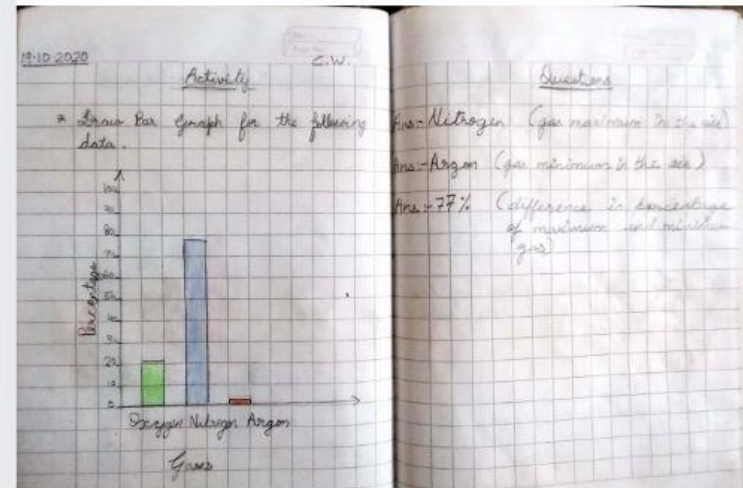 19-10-2020
C.W.
Activity
* Draw Bar Graph for the following
data.
100
90
80
70
60
50
40
30
20
10
0
Percentage
Oxygen Nitrogen Argon
Gases
Questions
Ans:- Nitrogen (gas maximum in the air)
Ans:- Argon (gas minimum in the air)
Ans:- 77% (difference in percentage
of maximum and minimum
gas)